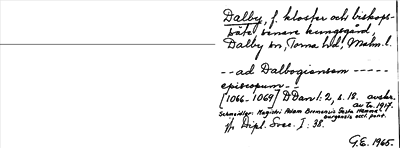 Dalby, f. kloster och biskops-
säte senare kungsgård,
Dalby sn, Torna hd, Malm. l.
-- ad Dalbogiensem -----
episcopum --
[1066-1069] DDan 1:2, s. 18. avskr.
av tr. 1917.
Schmeidler: Magistri Adam Bremensis Gesta Hamma-
burgensis eccl. pont.
jfr Dipl. Svec. I: 38.
G.E. 1965.